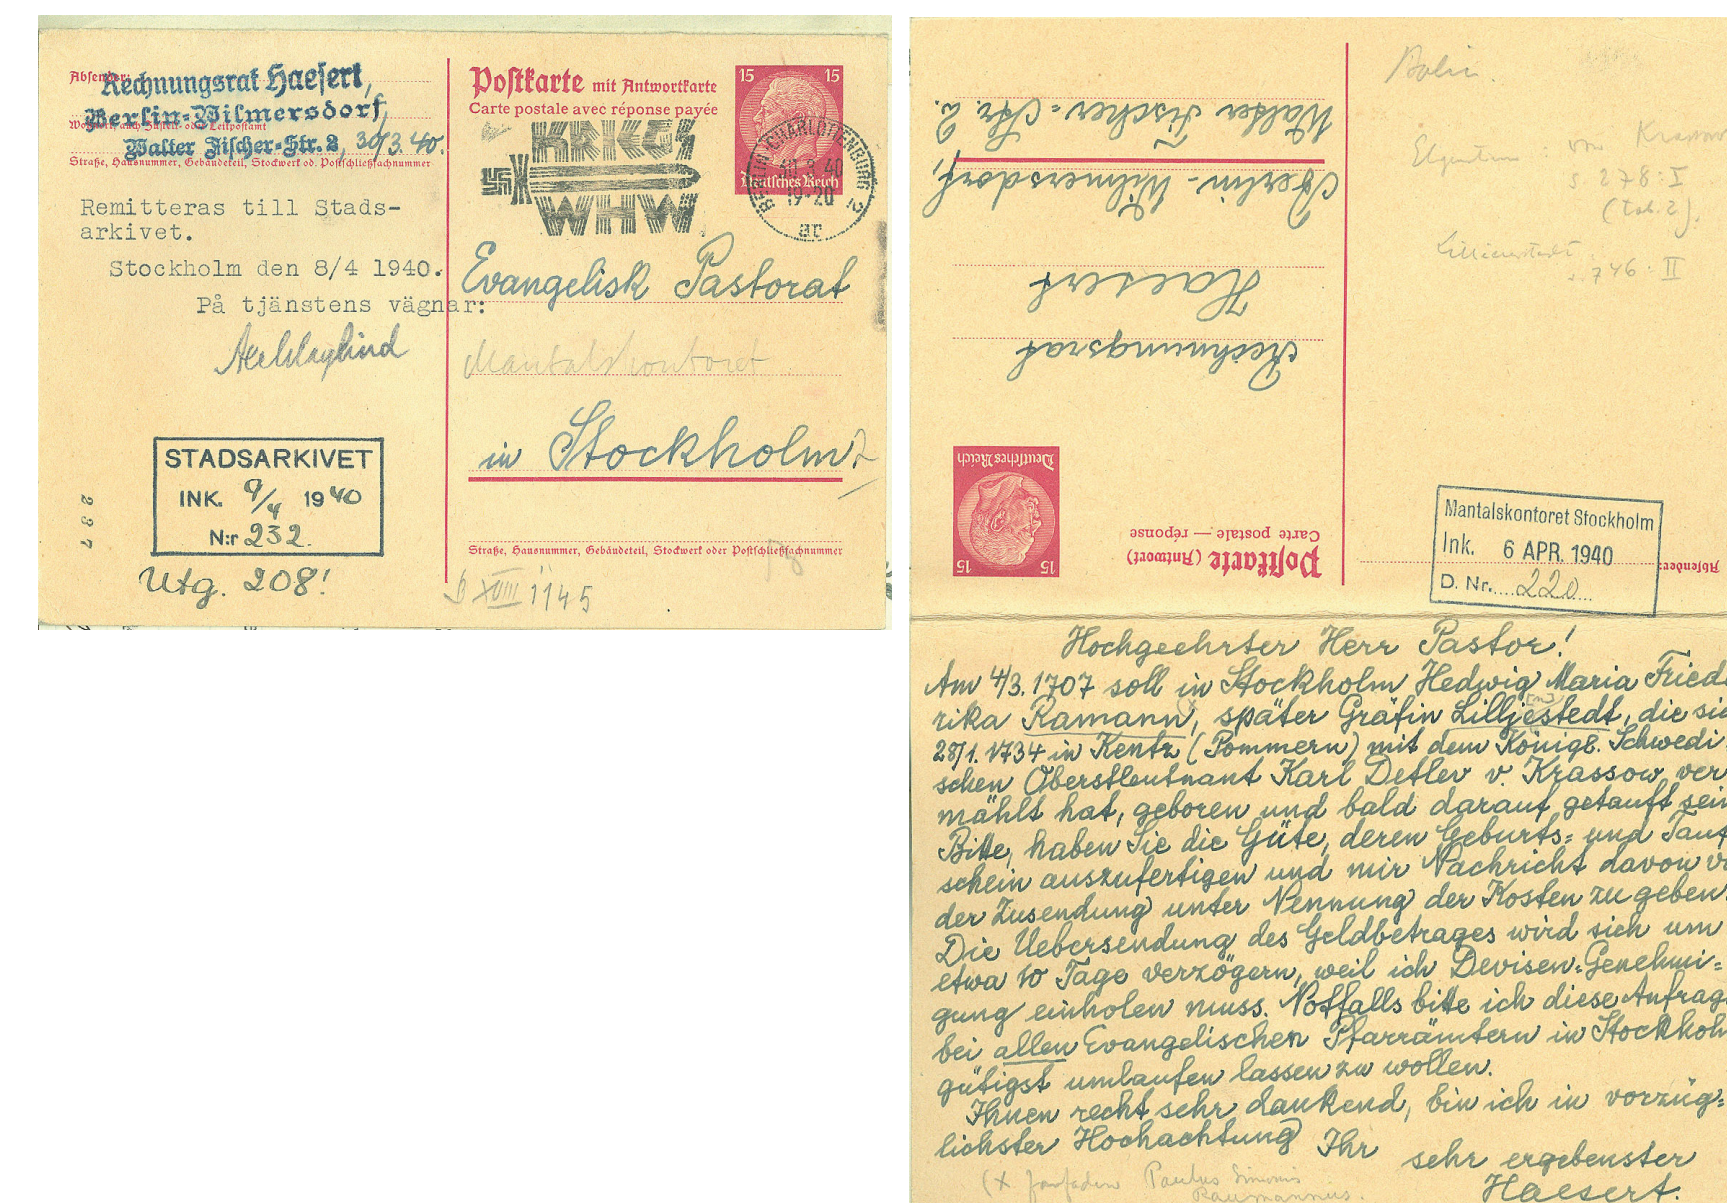 Absender:
Rechnungsrat Haesert,
Berlin-Wilmersdorf,
Wohnort, auch Zustell- oder Leitpostamt
Walter Fischer-Str. 2, 30/3.40.
Straße, Hausnummer, Gebäudeteil, Stockwerk od. Postschließfachnummer
Remitteras till Stads-
arkivet.
Stockholm den 8/4 1940.
På tjänstens vägnar:
STADSARKIVET
INK. 9/4 1940
N:r 232.
Utg. 208!
237
Postkarte mit Antwortkarte
Carte postale avec réponse payée
15 15
Deutsches Reich
KRIEGS
WHW
BERLIN-CHARLOTTENBURG 2
30.3.40
19-20
ar
Evangelisk Pastorat
Mantalskontoret
in Stockholm
Straße, Hausnummer, Gebäudeteil, Stockwerk oder Postschließfachnummer
6 XVIII 1145
Postkarte (Antwort)
Carte postale — réponse
15 15
Deutsches Reich
Rechnungsrat
Haesert
Berlin-Wilmersdorf,
Walter Fischer-Str. 2.
Absender:
Elgenstierna: von Krassow
s 278: I
(tab. 2).
Lillienstedt
s. 746: II
Mantalskontoret Stockholm
Ink. 6 APR. 1940
D. Nr. 220
Hochgeehrter Herr Pastor!
Am 4/3. 1707 soll in Stockholm Hedwig Maria Friede
rika Ramann, später Gräfin Lilljestedt, die sic
28/1. 1734 in Kentz (Pommern) mit dem Königl. Schwedi
schen Oberstleutnant Karl Detlev v. Krassow ver
mählt hat, geboren und bald darauf getauft sein
Bitte, haben Sie die Güte, deren Geburts= und Tauf
schein auszufertigen und mir Nachricht davon vo
der Zusendung unter Nennung der Kosten zu geben.
Die Uebersendung des Geldbetrages wird sich um
etwa 10 Tage verzögern, weil ich Devisen=Genehmi=
gung einholen muss. Notfalls bitte ich diese Anfrage
bei allen Evangelischen Pfarrämtern in Stockholm
gütigst umlaufen lassen zu wollen.
Ihnen recht sehr dankend, bin ich in vorzüg=
lichster Hochachtung Ihr sehr ergebenster
Haesert.
(x farfadern Paulus Simonis
Raumannus.